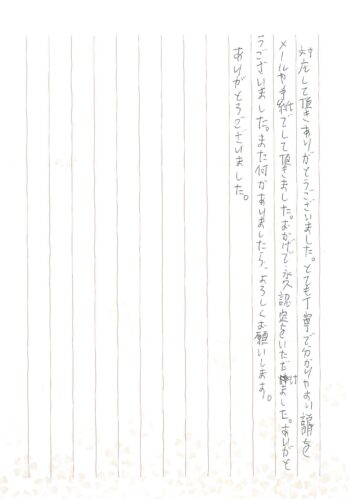 対応して頂きありがとうございました。とても丁寧で分かりやすい説明を
メールや手紙でして頂きました。おかげで永久認定をいただけました。ありがと
うございました。また何かありましたら、よろしくお願いします。
ありがとうございました。